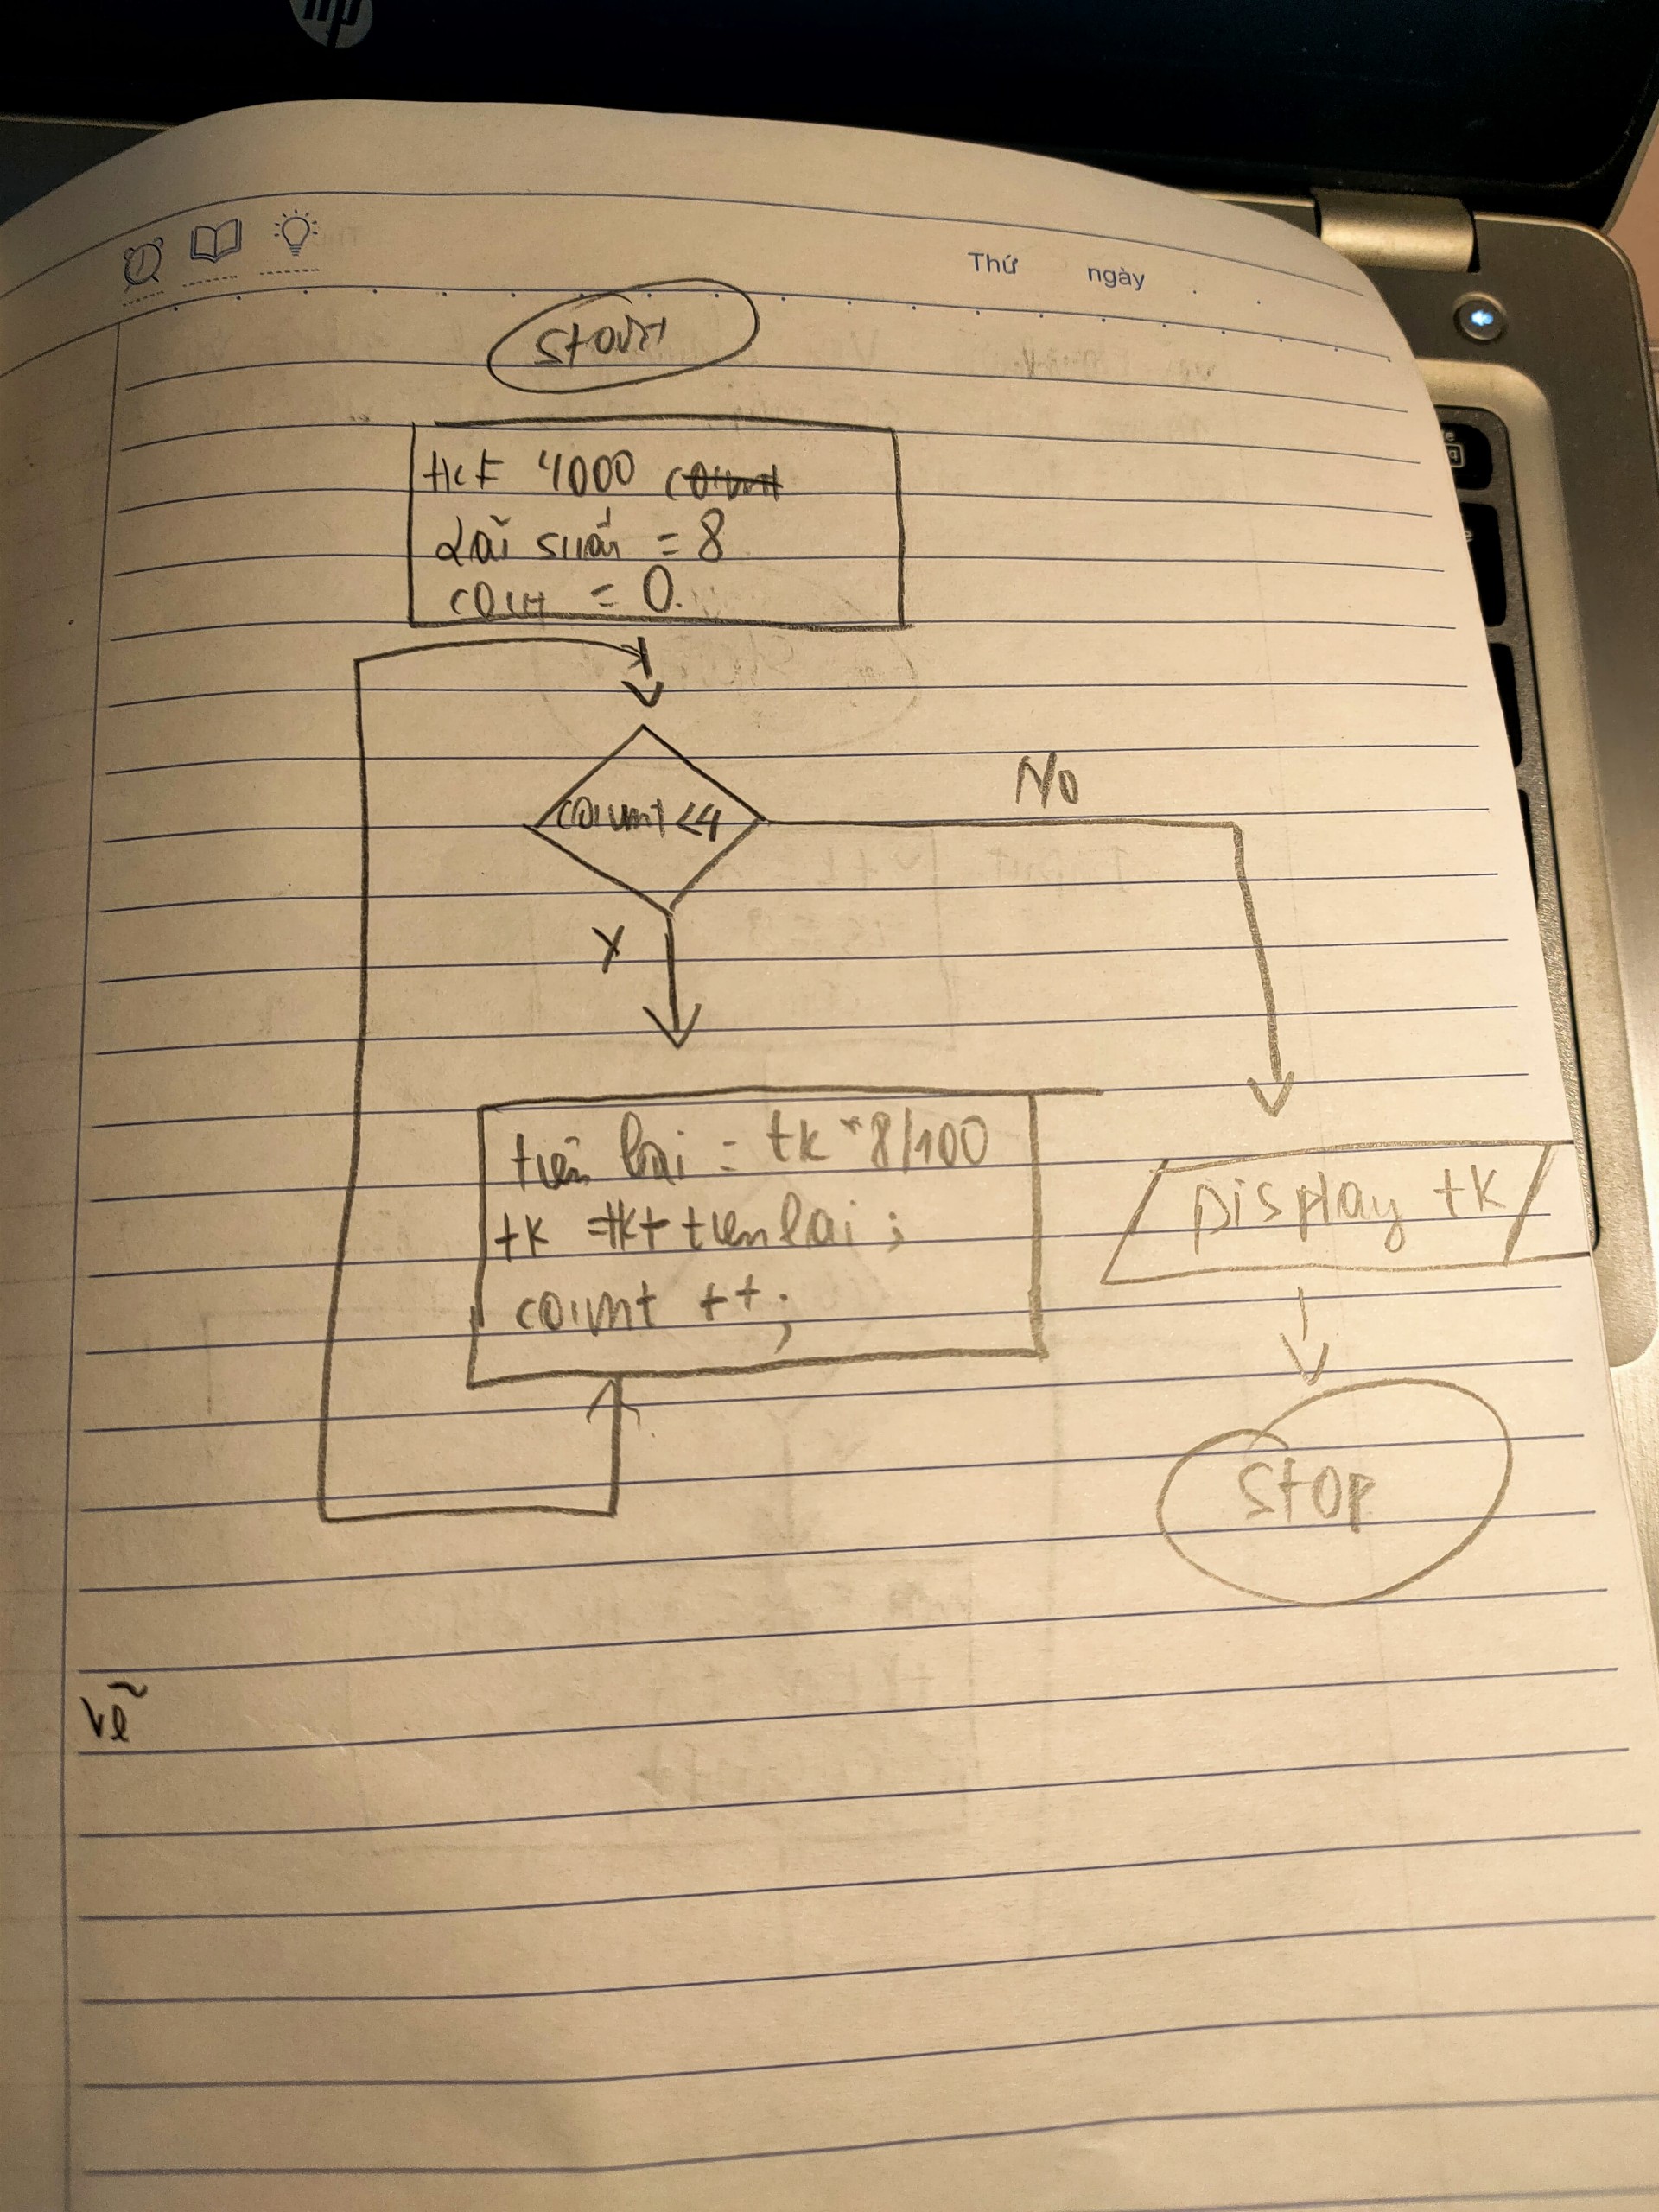 hp
Thứ ngày
Start
tk = 4000
Lãi suất = 8
count = 0.
count <4
No
Y
tiền lãi = tk * 8/100
tk = tk + tienlai ;
count ++ ;
Display tk
Stop
Vẽ